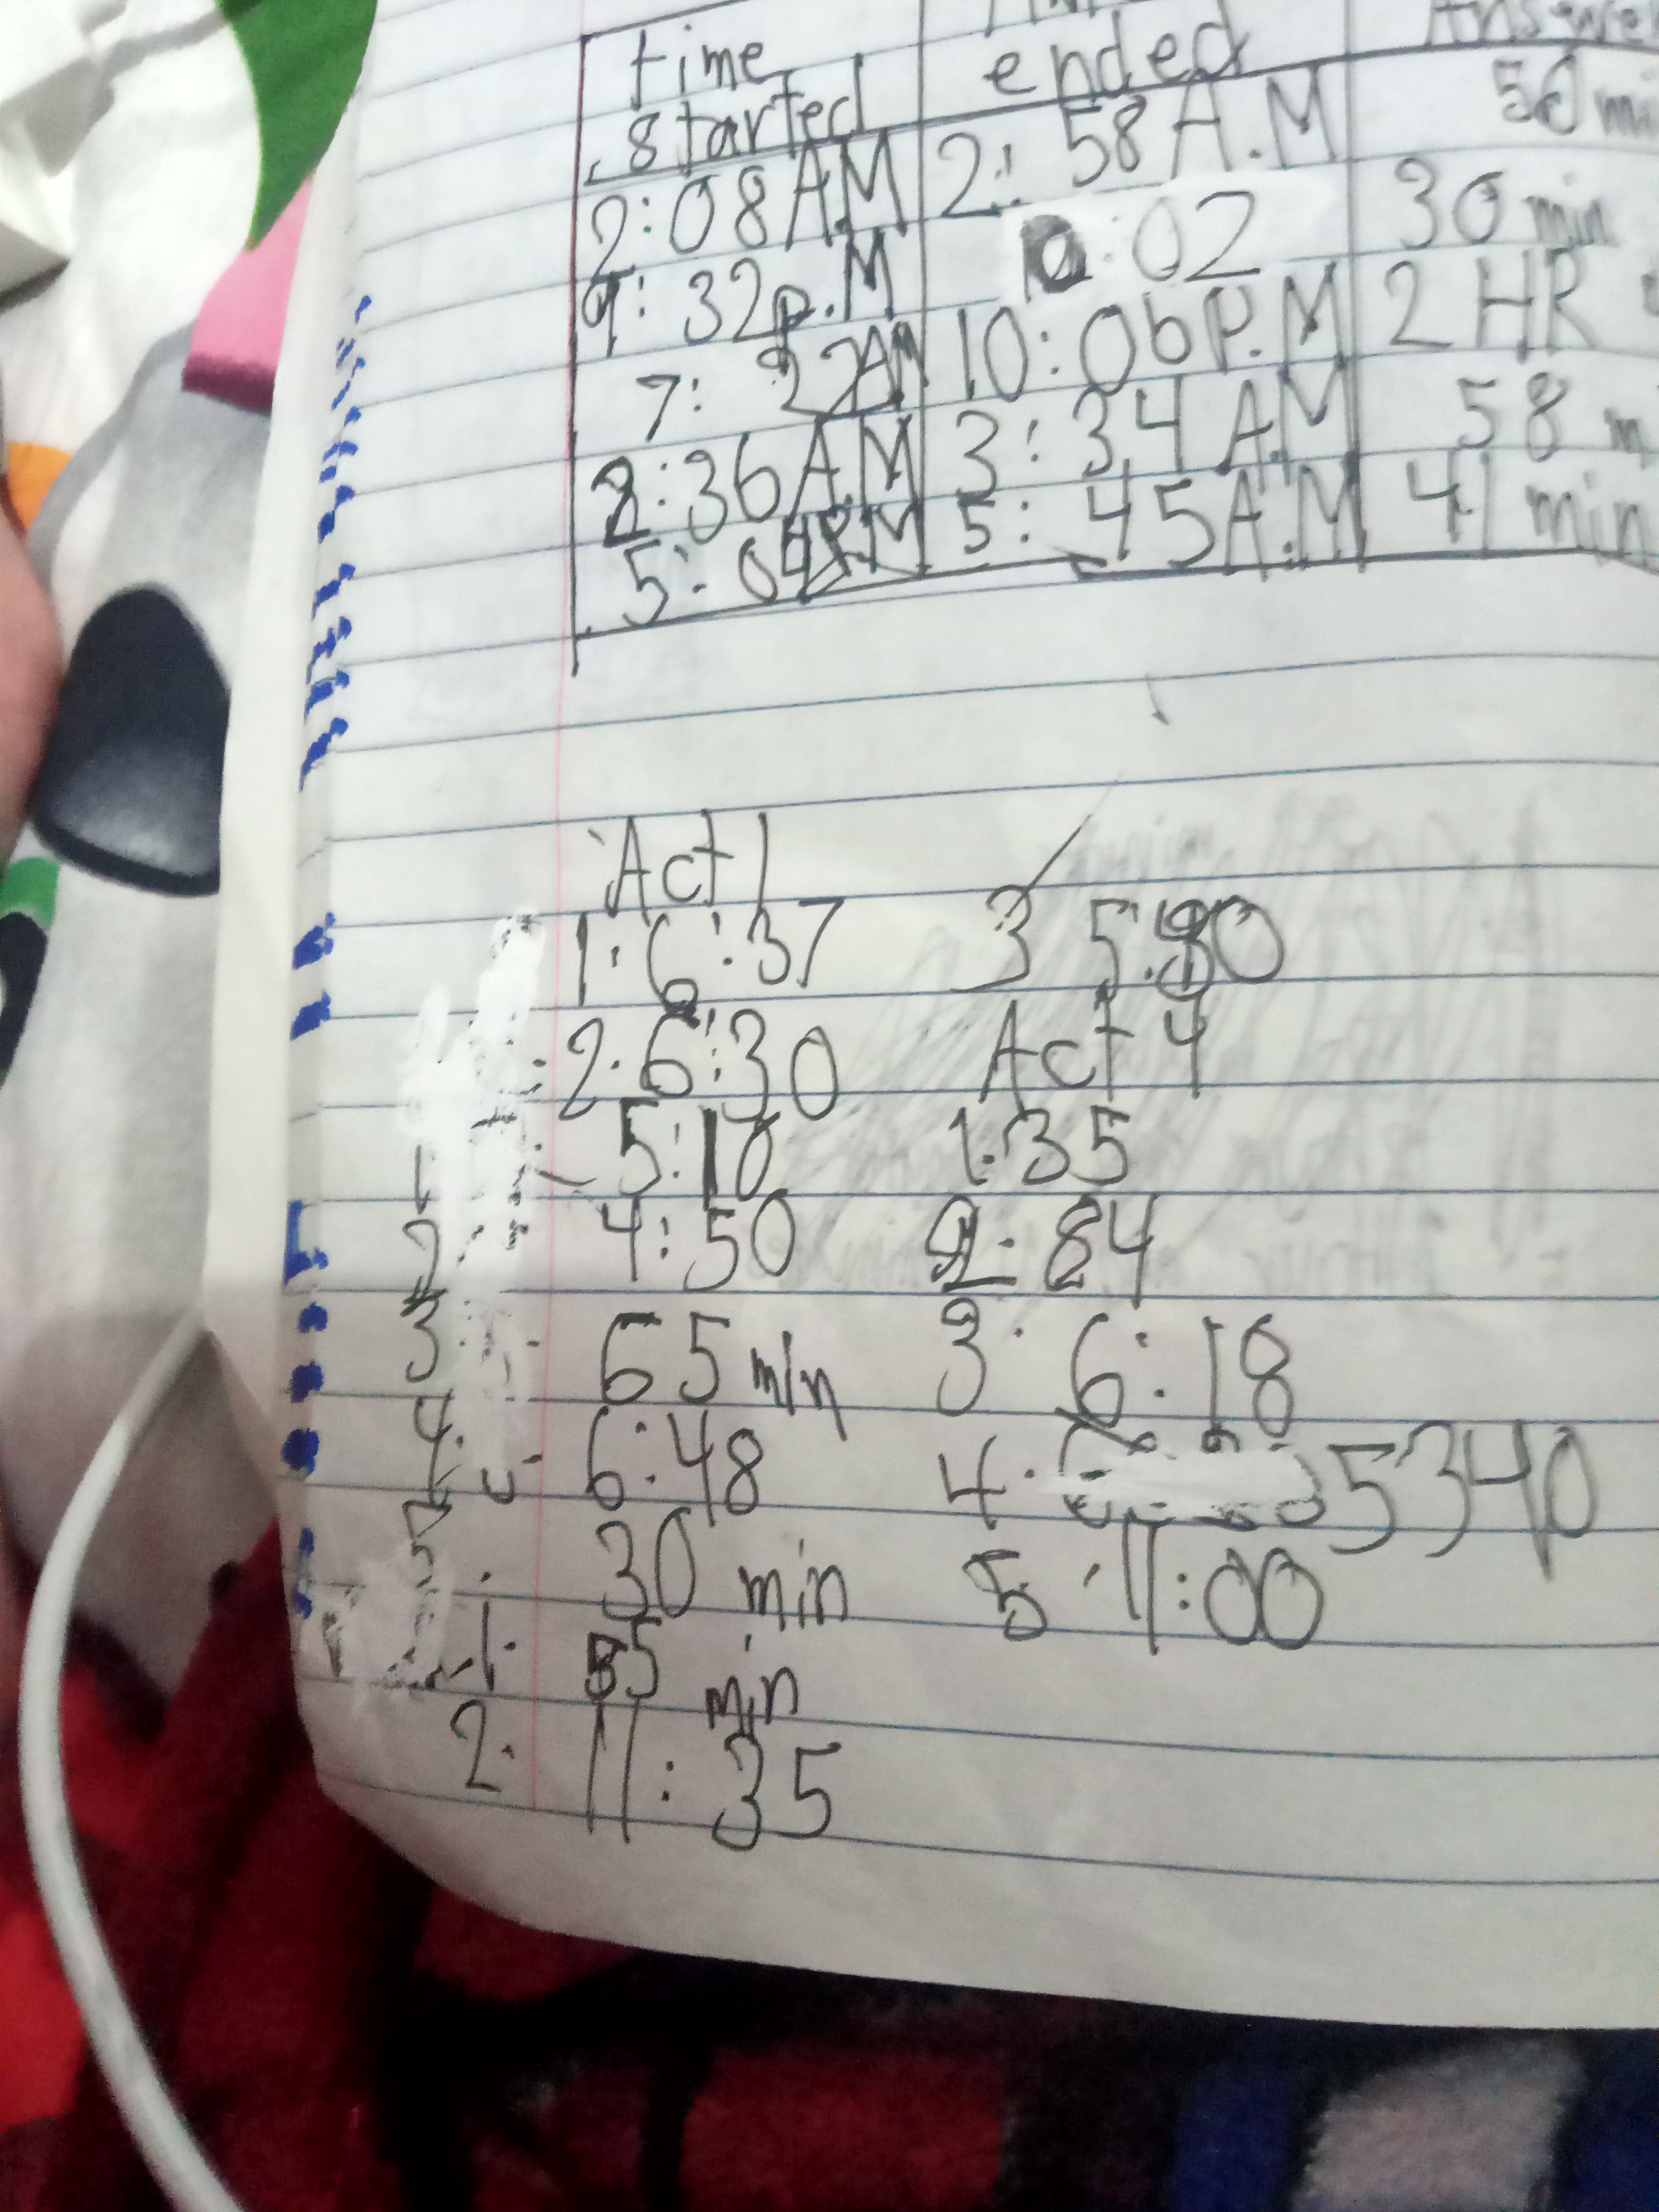 time started ended Answer
2:08 A.M 2: 58 A.M 50 mi
9: 32 p.M :02 30 min
7: 22 AM 10:06 P.M 2 HR
2:36 A.M 3: 34 A.M 58 m
5: 04 5: 45 A.M 41 min
Act 1
1. 6:37
2. 6:30
1 5:10
2 4:50
3 65 min
4. 6:48
5. 30 min
1. 55 min
2. 11: 35
3 5:
Act 4
1. 35
2. 84
3. 6:18
4. 5340
5. 11:00